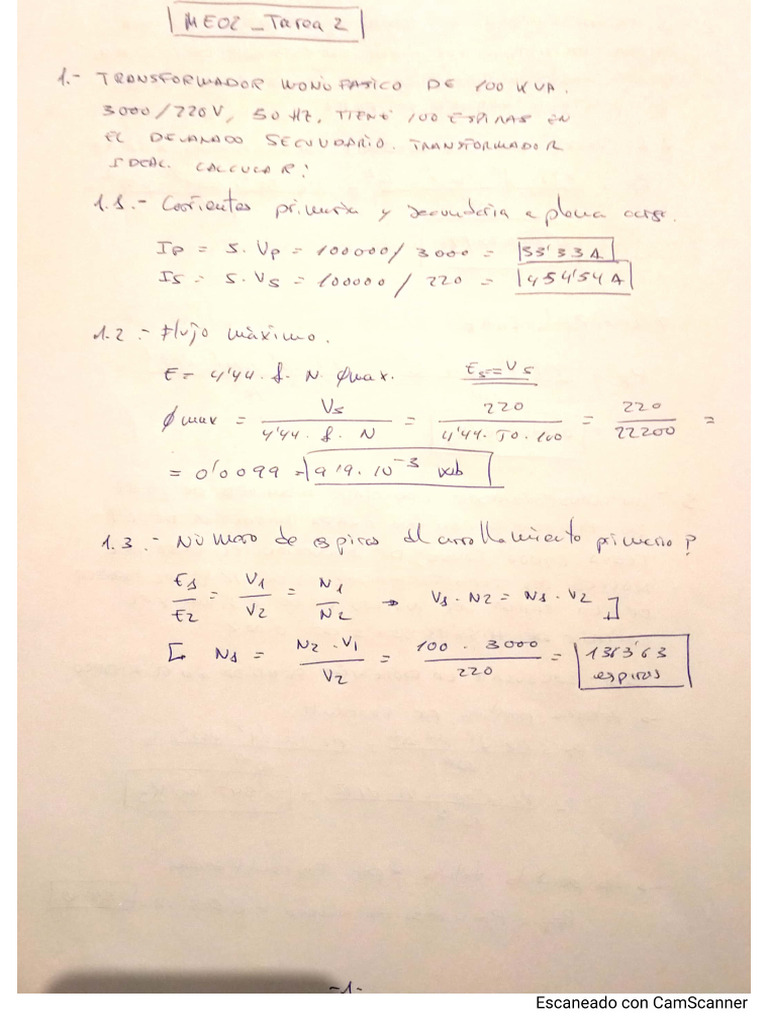 ME02_Tarea 2
1.- TRANSFORMADOR MONOFASICO DE 100 KVA.
3000/220V, 50 HZ, TIENE 100 ESPIRAS EN
EL DEVANADO SECUNDARIO. TRANSFORMADOR
IDEAL. CALCULAR:
1.1.- Corrientes primaria y secundaria a plena carga.
Ip = S. Vp = 100000/ 3000 = 33'33 A
Is = S. Vs = 100000 / 220 = 454'54 A
1.2.- Flujo màximo.
E = 4'44. f. N. ϕmax. Es=Vs
ϕmax = Vs / 4'44. f. N = 220 / 4'44. 50. 100 = 220 / 22200 =
= 0'0099 = 9'9. 10⁻³ wb
1.3.- Número de espiras del arrollamiento primario?
E1/E2 = V1/V2 = N1/N2 → V1. N2 = N1. V2 ]
[ N1 = N2 . V1 / V2 = 100 . 3000 / 220 = 1363'63 espiras
-1-
Escaneado con CamScanner